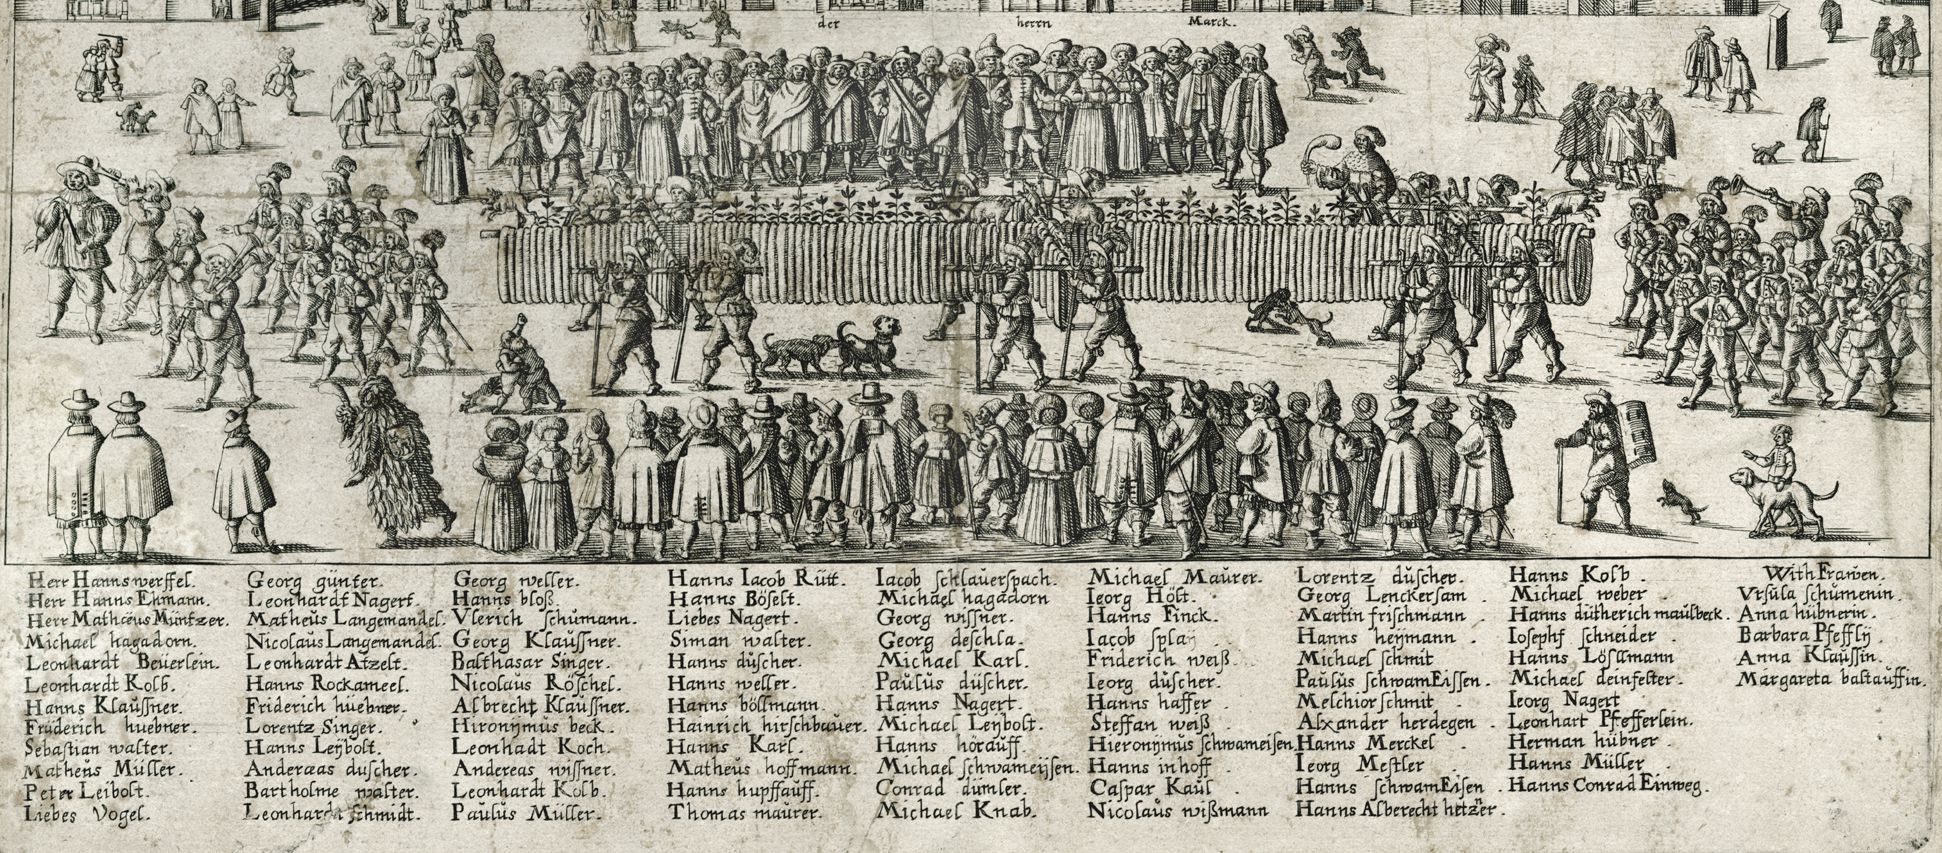 der herrn Marck.
Herr Hanns werffel.
Herr Hanns Ehmann.
Herr Mathëus Müntzer.
Michael hagadorn.
Leonhardt Beüerlein.
Leonhardt Kolb.
Hanns Klaüßner.
Früderich huebner.
Sebastian walter.
Matheüs Müller.
Peter Leibolt.
Liebes Vogel.
Georg günter.
Leonhardt Nagert.
Matheüs Langemandel.
Nicolaüs Langemandel.
Leonhardt Atzelt.
Hanns Rockameel.
Friderich hüebner.
Lorentz Singer.
Hanns Leÿbolt.
Anderæas duscher.
Bartholme walter.
Leonhardt schmidt.
Georg weller.
Hanns bloß.
Vlerich schümann.
Georg Klaüssner.
Balthasar Singer.
Nicolaüs Röschel.
Albrecht Klaüssner.
Hironÿmüs beck.
Leonhadt Koch.
Andereas wissner.
Leonhardt Kolb.
Paulüs Müller.
Hanns Iacob Rütt.
Hanns Böselt.
Liebes Nagert.
Siman walter.
Hanns düscher.
Hanns weller.
Hanns böllmann.
Hainrich hirschbaüer.
Hanns Karl.
Matheüs hoffmann.
Hanns hupffaüff.
Thomas maürer.
Iacob schlaüerspach.
Michael hagadorn
Georg wissner.
Georg deschla.
Michael Karl.
Paülüs düscher.
Hanns Nagert.
Michael Leÿbolt.
Hanns höraüff.
Michael schwameÿsen.
Conrad dümler.
Michael Knab.
Michael Maürer.
Ieorg Hölt.
Hanns Finck.
Iacob splaÿ
Friderich weiß.
Ieorg düscher.
Hanns haffer.
Steffan weiß
Hieronÿmüs schwameisen.
Hanns inhoff
Caspar Kaül
Nicolaüs wißmann
Lorentz düscher.
Georg Lenckersam.
Martin frischmann
Hanns heÿmann.
Michael schmit
Paülüs schwamEissen.
Melchior schmit
Alxander herdegen.
Hanns Merckel.
Ieorg Mestler.
Hanns schwamEisen.
Hanns Alberecht hetzner.
Hanns Kolb.
Michael weber.
Hanns dütherich maülbeck.
Iosephf schneider.
Hanns Lösllmann
Michael deinfelter.
Ieorg Nagert
Leonhart Pfefferlein.
Herman hübner.
Hanns Müller.
Hanns Conrad Einweg.
With Frawen.
Vrsüla schümenin.
Anna hübnerin.
Barbara Pfefflÿ.
Anna Klaüssin.
Margareta baltaüffin.